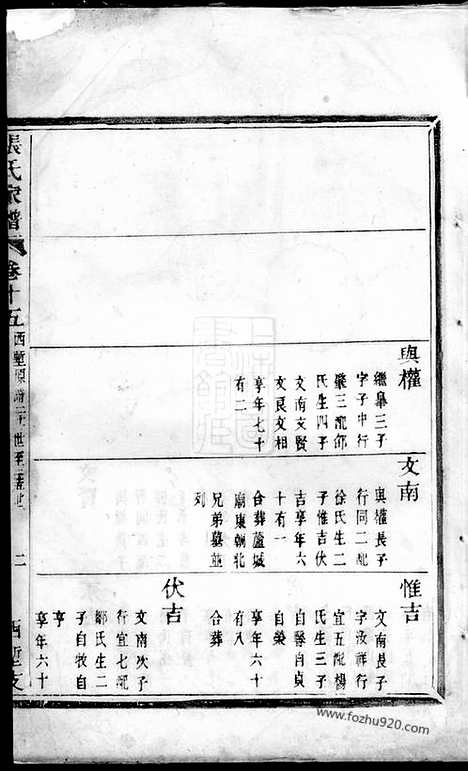 興權
繼皐三子
字子中行
榘三配鄒
氏生四子
文南文賢
文良文相
享年七十
有二
文南
與權長子
行同二配
徐氏生二
子惟吉伏
吉享年六
十有一
合葬蘆城
廟東朝北
兄弟墓並
列
惟吉
文南長子
字汝祥行
宜五配楊
氏生三子
自馨自貞
自榮
享年六十
有八
合葬
伏吉
文南次子
行宜七配
鄒氏生二
子自牧自
亨
享年六十
張氏家譜
卷十五
世至
二
西塹支
www.fozhu920.com